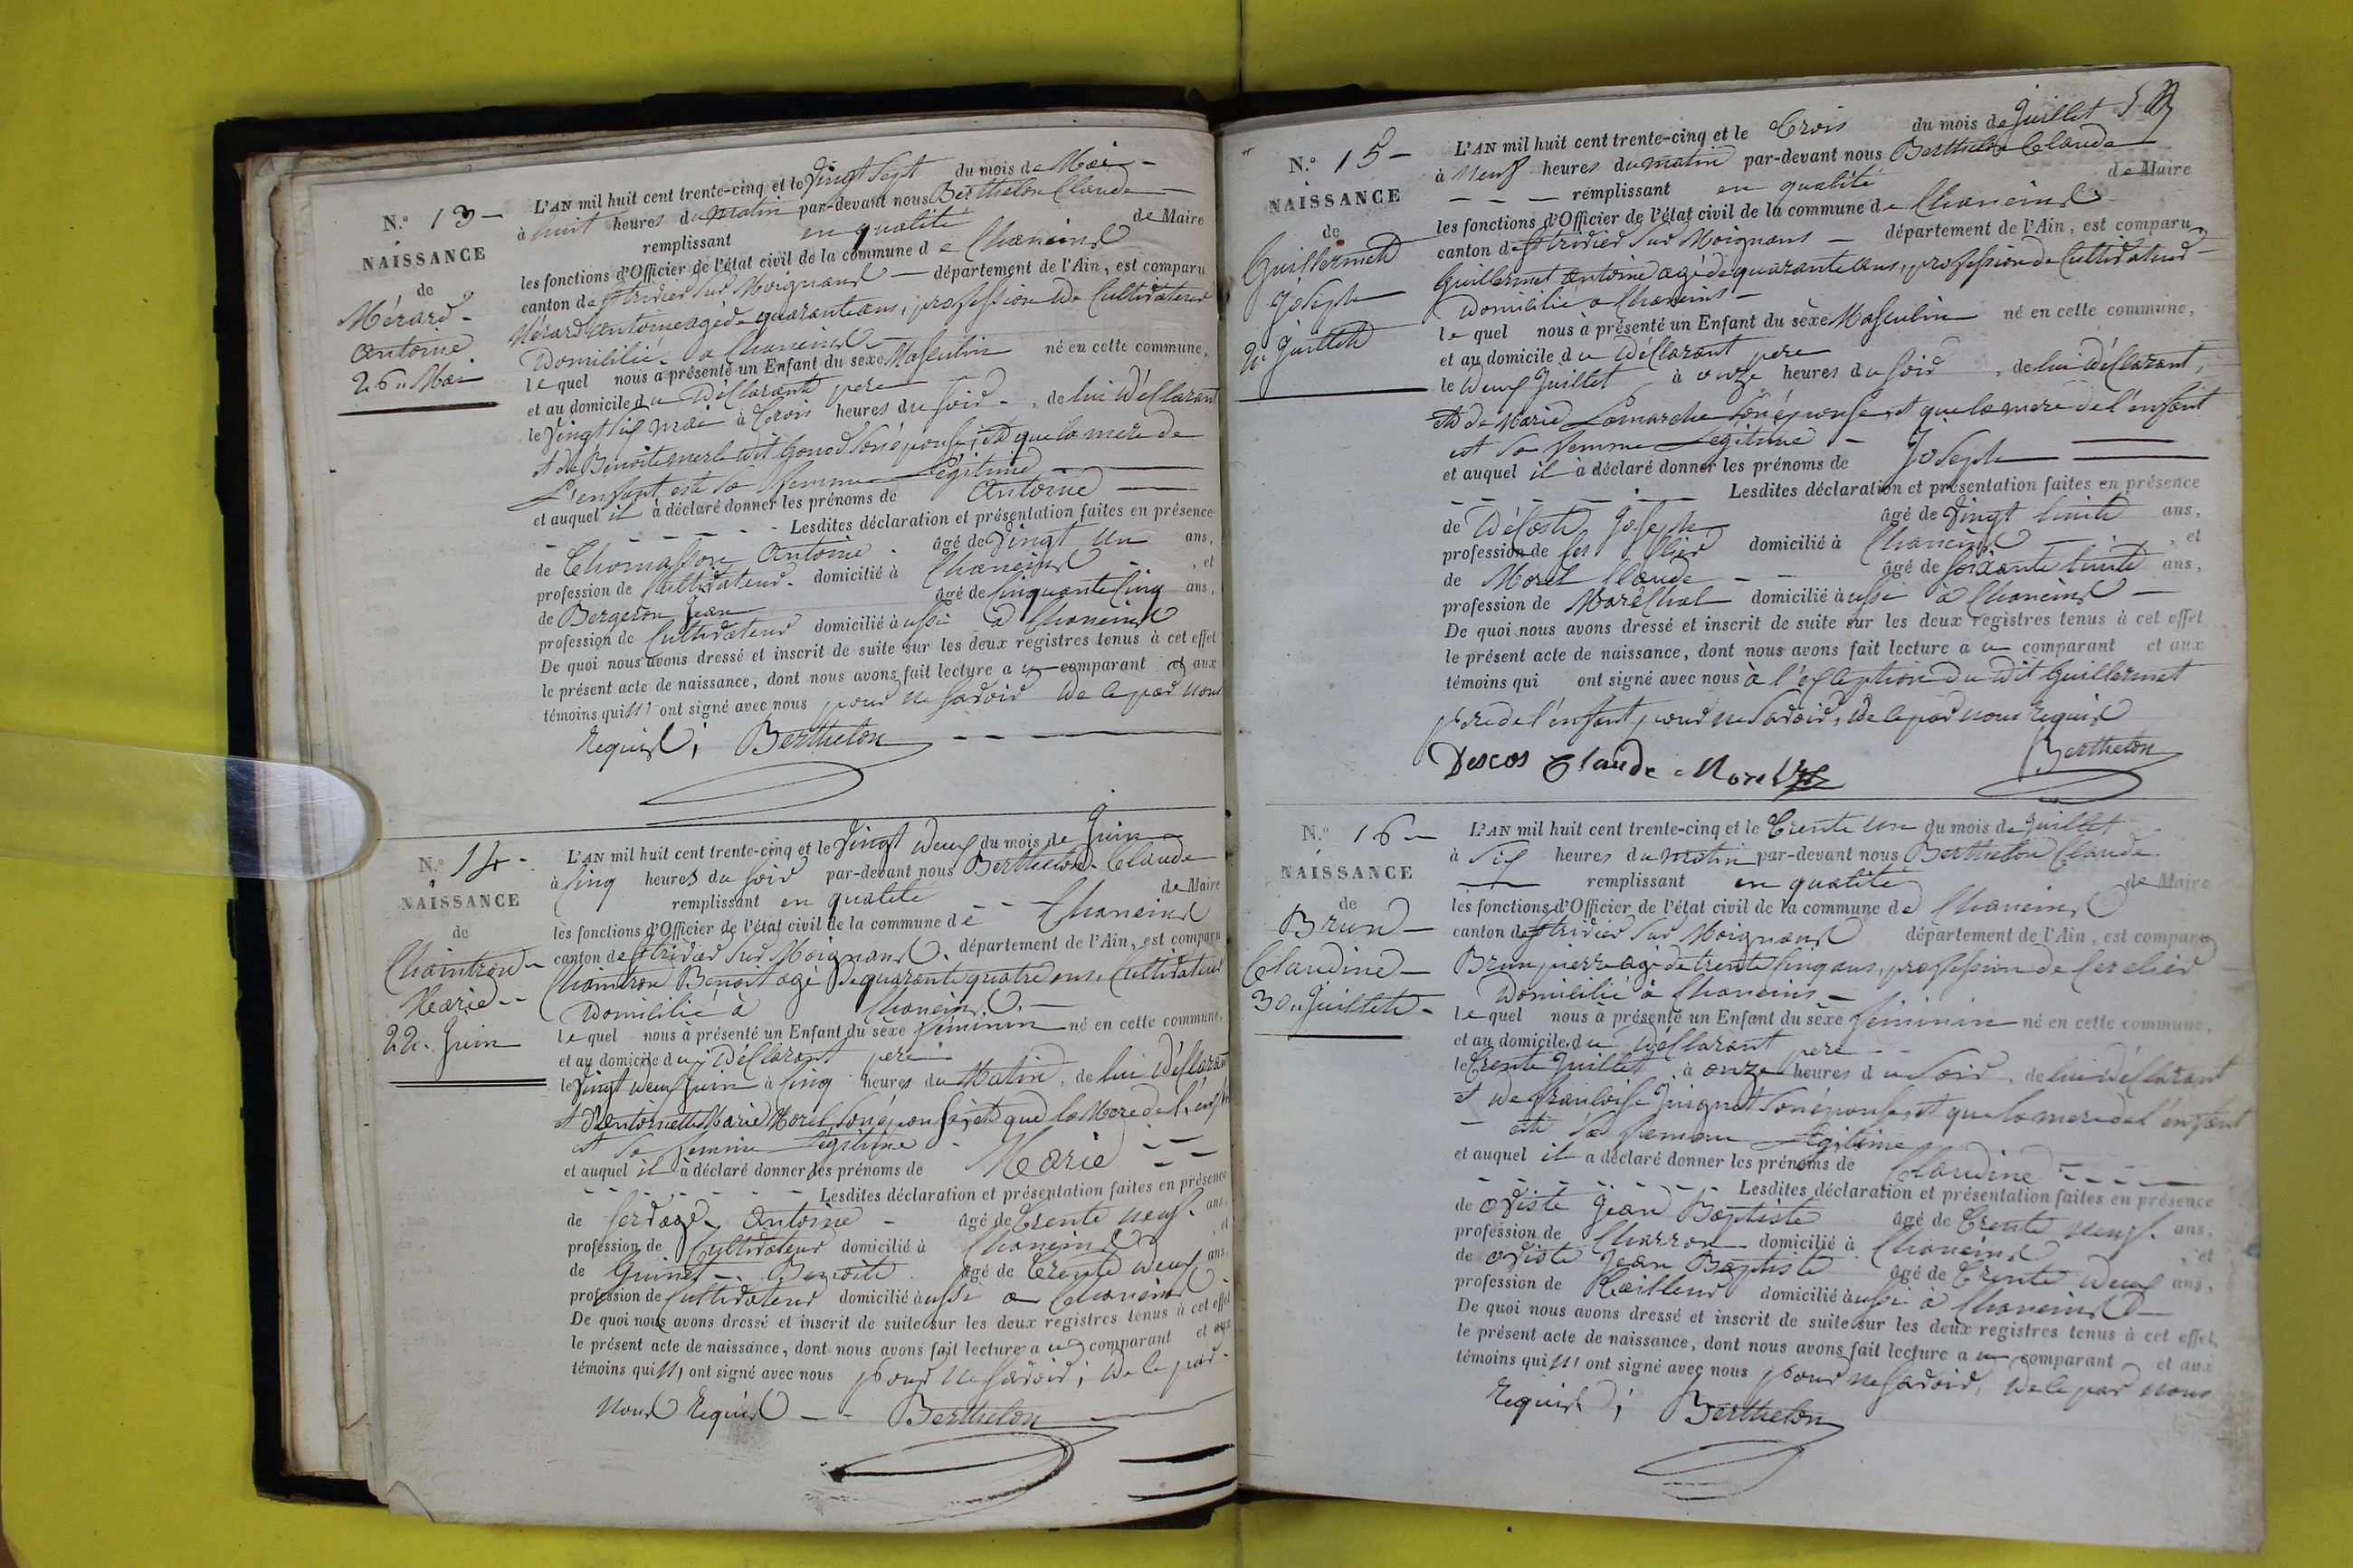 N.° 13 -
NAISSANCE
de
Mérard -
Antoine
26 .. Mai
L'AN mil huit cent trente-cinq et le Vingt Sept du mois de Mai -
à huit heures du matin par-devant nous Berthelon Claude
remplissant en qualité de Maire
les fonctions d'Officier de l'état civil de la commune de Chaneins
canton de St trivier Sur Moignans - département de l'Ain, est comparu
Mérard Antoine agé de quarante ans, profession de Cultivateur
Domicilié a Chaneins -
le quel nous a présenté un Enfant du sexe Masculin né en cette commune,
et au domicile du Déclarant pere
le Vingt Six mai à Trois heures du Soir - , de lui Déclarant
et de Benoite merle dit Gonod Son épouse, et que la mere de
L'enfant est Sa femme Légitime
et auquel il a déclaré donner les prénoms de Antoine
Lesdites déclaration et présentation faites en présence
de Thomasson Antoine - âgé de Vingt Un ans,
profession de Cultivateur - domicilié à Chaneins , et
de Bergeron Jean âgé de Cinquante Cinq ans,
profession de Cultivateur domicilié aussi à Chaneins
De quoi nous avons dressé et inscrit de suite sur les deux registres tenus à cet effet
le présent acte de naissance, dont nous avons fait lecture au comparant et aux
témoins qui n' ont signé avec nous pour ne Savoir de ce par nous
Requis ; Berthelon
N.° 14 -
NAISSANCE
de
Chaintron -
Marie --
22. Juin
L'AN mil huit cent trente-cinq et le Vingt deux du mois de Juin
à Cinq heures du Soir par-devant nous Berthelon Claude
remplissant en qualité de Maire
les fonctions d'Officier de l'état civil de la commune de Chaneins
canton de St trivier Sur Moignans . département de l'Ain, est comparu
Chaintron Benoit agé de quarante quatre ans, Cultivateur
Domicilié à Chaneins -
le quel nous à présenté un Enfant du sèxe féminin né en cette commune,
et au domicile du Déclarant pere
le Vingt deux Juin à Cinq heures du Matin, de lui Déclarant
et D'antoinette Marie Morel Son épouse, et que la Mere de l'enfant
est Sa femme Légitime
et auquel il à déclaré donner les prénoms de Marie
Lesdites déclaration et présentation faites en présence
de Antoine - âgé de Trente neuf ans,
profession de Cultivateur domicilié à Chaneins , et
de Guinet Benoite âgé de Trente deux ans,
profession de Cultivateur domicilié aussi a Chaneins
De quoi nous avons dressé et inscrit de suite sur les deux registres tenus à cet effet
le présent acte de naissance, dont nous avons fait lecture au comparant et aux
témoins qui n' ont signé avec nous pour ne Savoir ; de ce par -
nous Requis -- Berthelon
N.° 15 -
NAISSANCE
de
Guillermet
Joseph
2. Juillet
L'AN mil huit cent trente-cinq et le Trois du mois de Juillet
à Neuf heures du matin par-devant nous Berthelon Claude
remplissant en qualité de Maire
les fonctions d'Officier de l'état civil de la commune de Chaneins
canton de St trivier Sur Moignans - département de l'Ain, est comparu
Guillermet Antoine agé de quarante ans, profession de Cultivateur
Domicilié a Chaneins -
le quel nous à présenté un Enfant du sèxe Masculin né en cette commune,
et au domicile du Déclarant pere
le deux Juillet à onze heures du Soir , de lui Déclarant,
et de Marie Lamarche Son épouse, et que la mere de l'enfant
est Sa femme Légitime -
et auquel il à déclaré donner les prénoms de Joseph
Lesdites déclaration et présentation faites en présence
de Décoste Joseph âgé de Vingt huit ans,
profession de domicilié à Chaneins , et
de Morel Claude - - âgé de Soixante huit ans,
profession de Maréchal domicilié aussi a Chaneins -
De quoi nous avons dressé et inscrit de suite sur les deux registres tenus à cet effet
le présent acte de naissance, dont nous avons fait lecture au comparant et aux
témoins qui ont signé avec nous à l'exception du dit Guillermet
pere de l'enfant pour ne Savoir, de ce par nous Requis
Descos Claude Morel Berthelon
N.° 16 -
NAISSANCE
de
Brun -
Claudine -
30 .. Juillet -
L'AN mil huit cent trente-cinq et le Trente un du mois de Juillet
à Six heures du matin par-devant nous Berthelon Claude
remplissant en qualité de Maire
les fonctions d'Officier de l'état civil de la commune de Chaneins
canton de St trivier Sur Moignans département de l'Ain, est comparu
Brun pierre agé de trente Cinq ans, profession de
Domicilié à Chaneins -
le quel nous à présenté un Enfant du sèxe féminin né en cette commune,
et au domicile du Déclarant pere
le Trente Juillet à onze heures du Soir , de lui Déclarant
et de françoise Juignet Son épouse, et que la mere de l'enfant
est Sa femme Légitime
et auquel il a déclaré donner les prénoms de Claudine
Lesdites déclaration et présentation faites en présence
de Jean Baptiste âgé de Trente neuf ans,
profession de Charron domicilié à Chaneins , et
de Jean Baptiste âgé de Trente deux ans,
profession de Tailleur domicilié aussi à Chaneins
De quoi nous avons dressé et inscrit de suite sur les deux registres tenus à cet effet,
le présent acte de naissance, dont nous avons fait lecture au comparant et aux
témoins qui n' ont signé avec nous pour ne Savoir, de ce par nous
Requis ; Berthelon